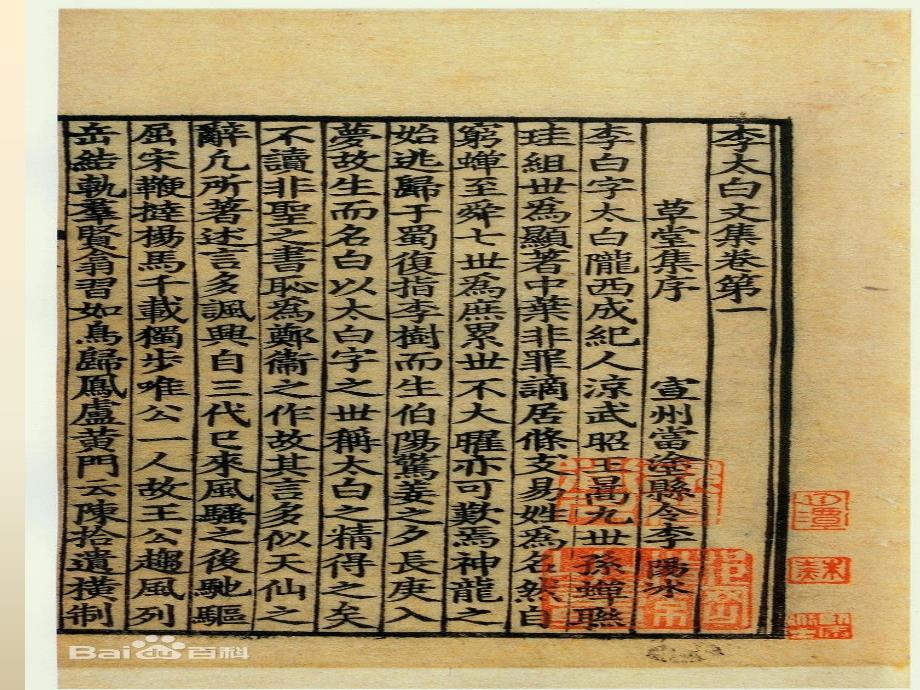 李太白文集卷第一
草堂集序 宣州當塗縣令李陽冰
李白字太白隴西成紀人涼武昭王暠九世孫蟬聯
珪組世爲顯著中葉非罪謫居條支易姓爲名然自
窮蟬至舜七世爲庶累世不大曜亦可歎焉神龍之
始逃歸于蜀復指李樹而生伯陽驚姜之夕長庚入
夢故生而名白以太白字之世稱太白之精得之矣
不讀非聖之書恥爲鄭衞之作故其言多似天仙之
辭凡所著述言多諷興自三代已來風騷之後馳驅
屈宋鞭撻揚馬千載獨步唯公一人故王公趨風列
岳結軌羣賢翕習如鳥歸鳳盧黃門云陳拾遺橫制
Bai百科